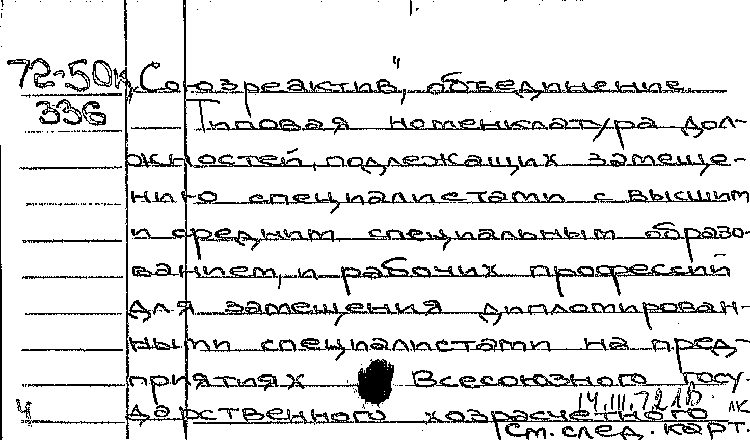 72-50к "Союзреактив", объединение.
336 Типовая номенклатура дол-
жностей, подлежащих замеще-
нию специалистами с высшим
и средним специальным образо-
ванием, и рабочих профессий
для замещения дипломирован-
ными специалистами на пред-
приятиях Всесоюзного госу-
14.III.72
Ч дарственного хозрасчетного ЛК
см. след. карт.